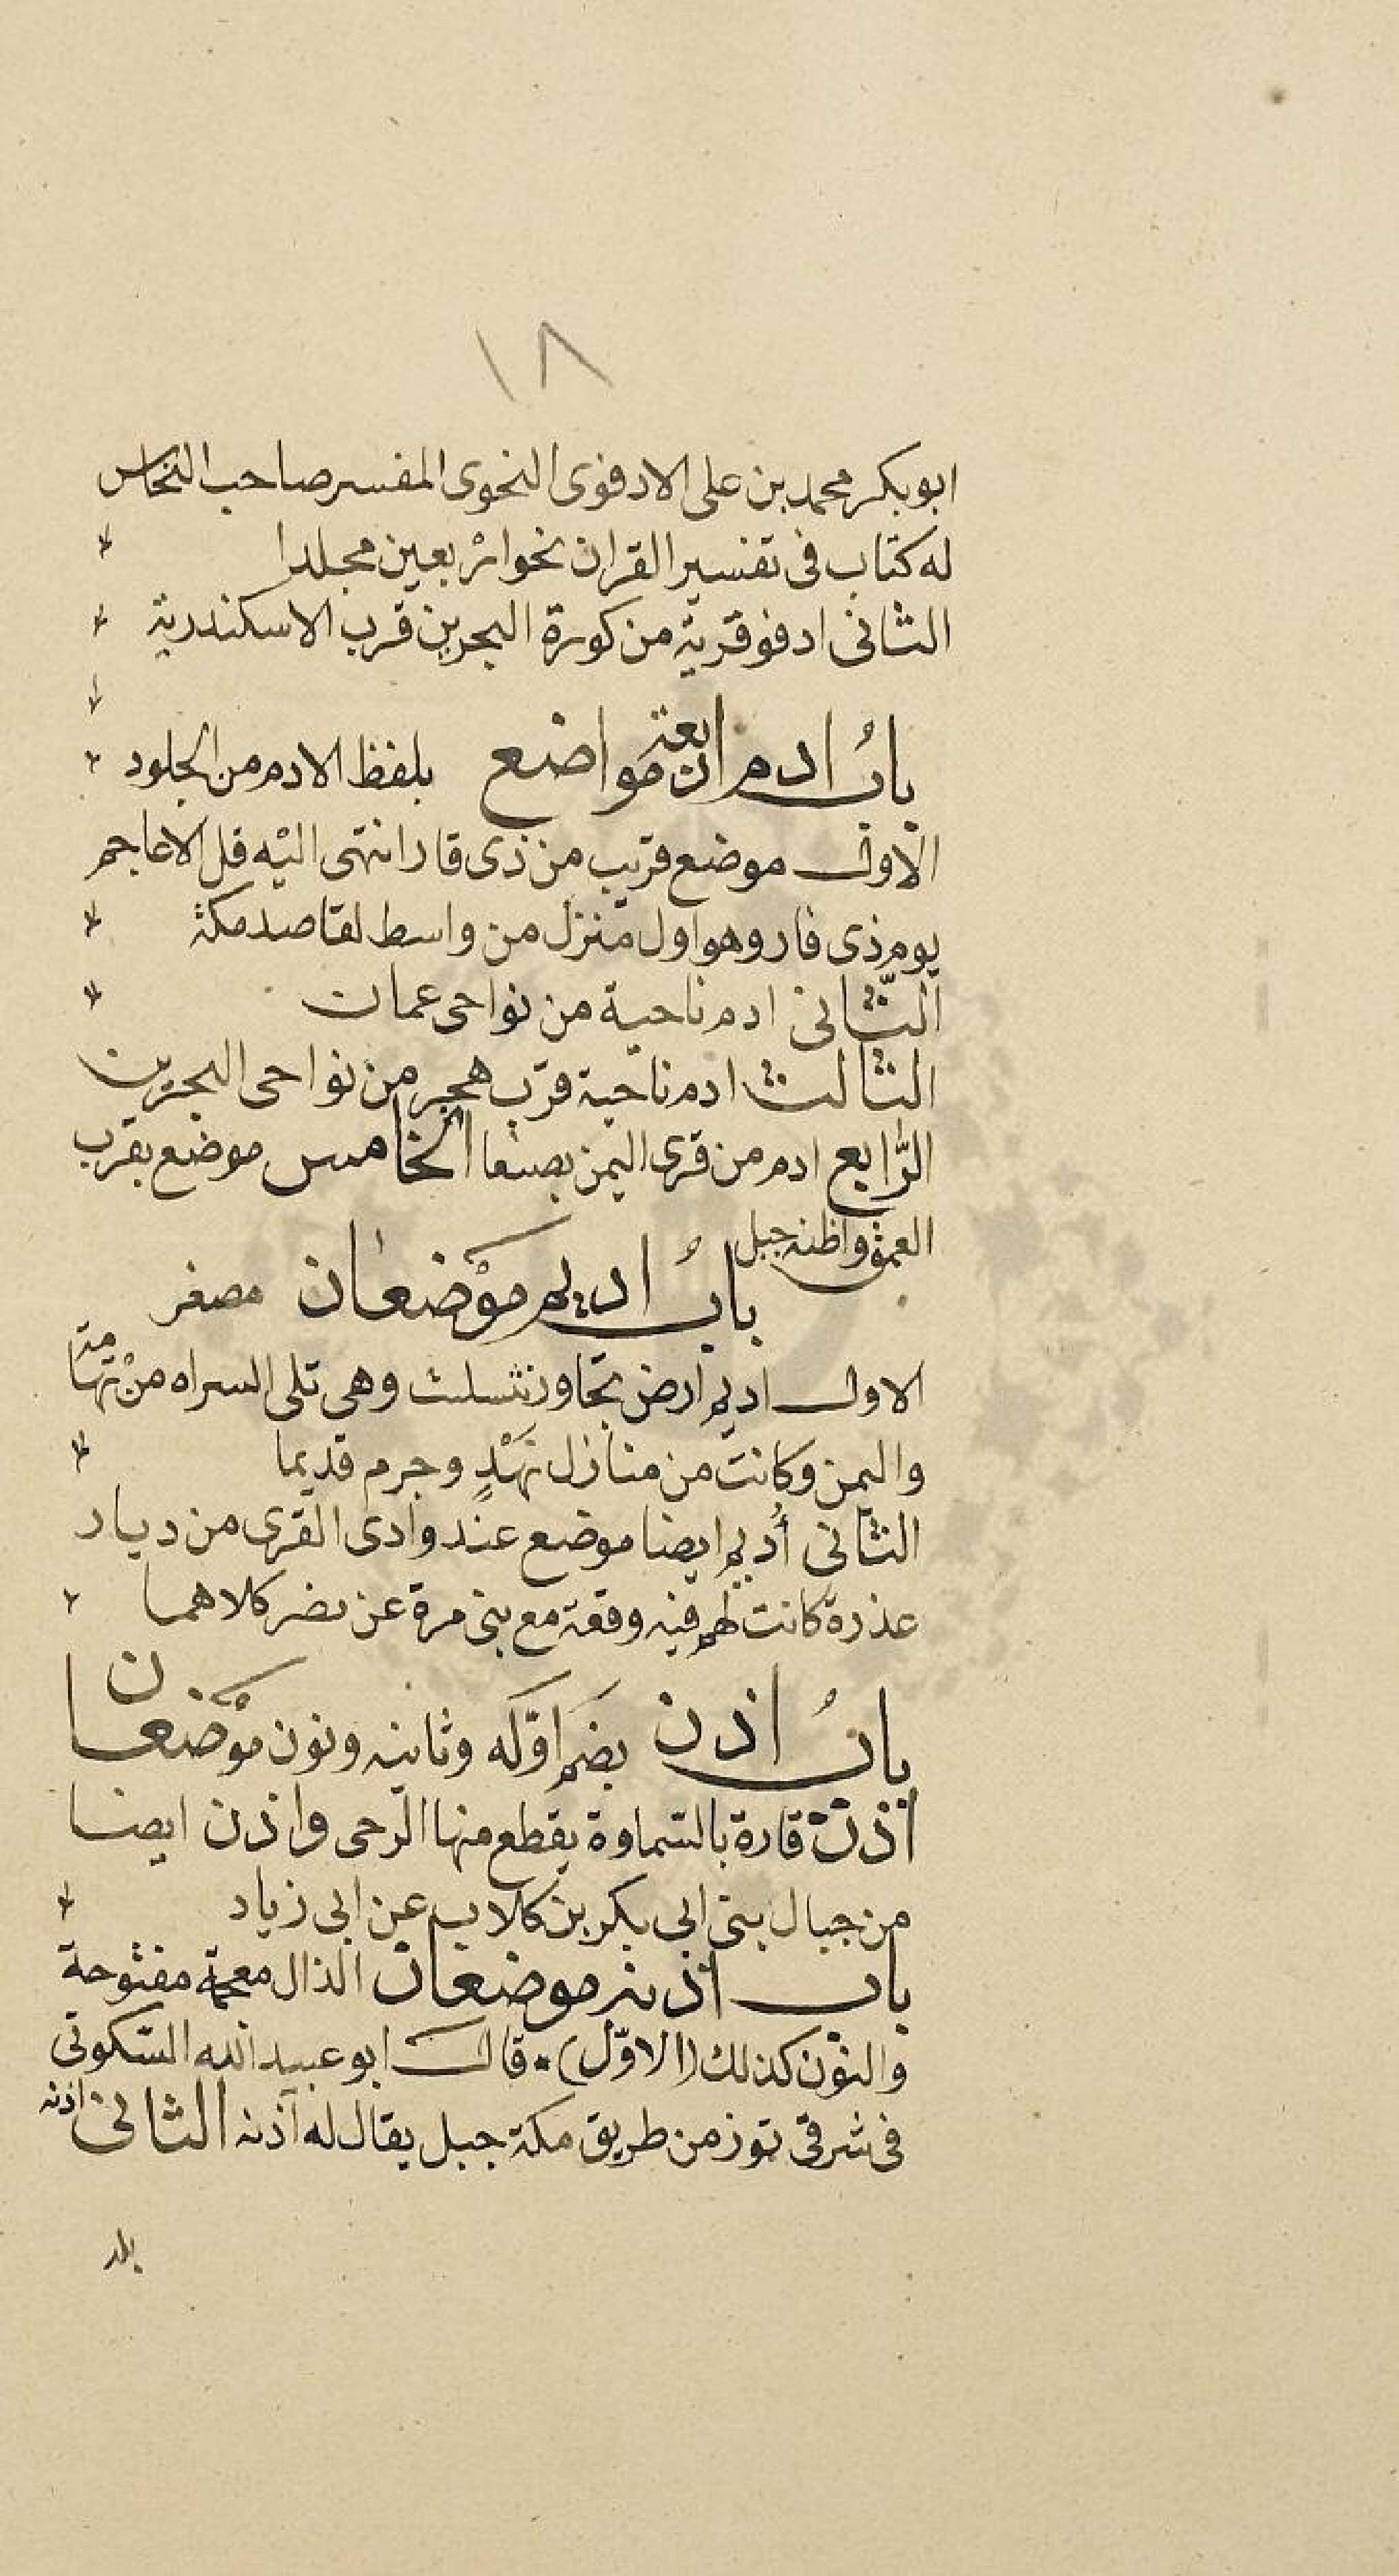 ١٨
ابو بكر محمد بن على الادفوى النحوى المفسر صاحب النحاس
له كتاب فى تفسير القران نحو اربعين مجلدا
الثانى ادفو قرية من كورة البحرين قرب الاسكندرية
باب ادم اربعة مواضع بلفظ الادم من الجلود
الاول موضع قريب من ذى قار انتهى اليه فل الاعاجم
يوم ذى قار وهو اول منزل من واسط لقاصد مكة
الثانى ادم ناحية من نواحى عمان
الثالث ادم ناحية قرب هجر من نواحى البحرين
الرابع ادم من قرى اليمن بصنعا الخامس موضع بقرب
العمق واظنه جبل
باب اديم موضعان مصغر
الاول اديم ارض تجاور تثليث وهى تلى السراه من تهامة
واليمن وكانت من منازل نهد وجرم قديما
الثانى أديم ايضا موضع عند وادى القرى من ديار
عذرة كانت لهم فيه وقعة مع بنى مرة عن نصر كلاهما
باب اذن بضم اوله وثانيه ونون موضعان
اذن قارة بالسماوة يقطع منها الرحى واذن ايضا
من جبال بنى ابى بكر بن كلاب عن ابى زياد
باب اذنه موضعان الذال معجمة مفتوحة
والنون كذلك (الاول) * قال ابو عبيد الله السكونى
فى شرقى توز من طريق مكة جبل يقال له آذنه الثانى اذنه
بلد